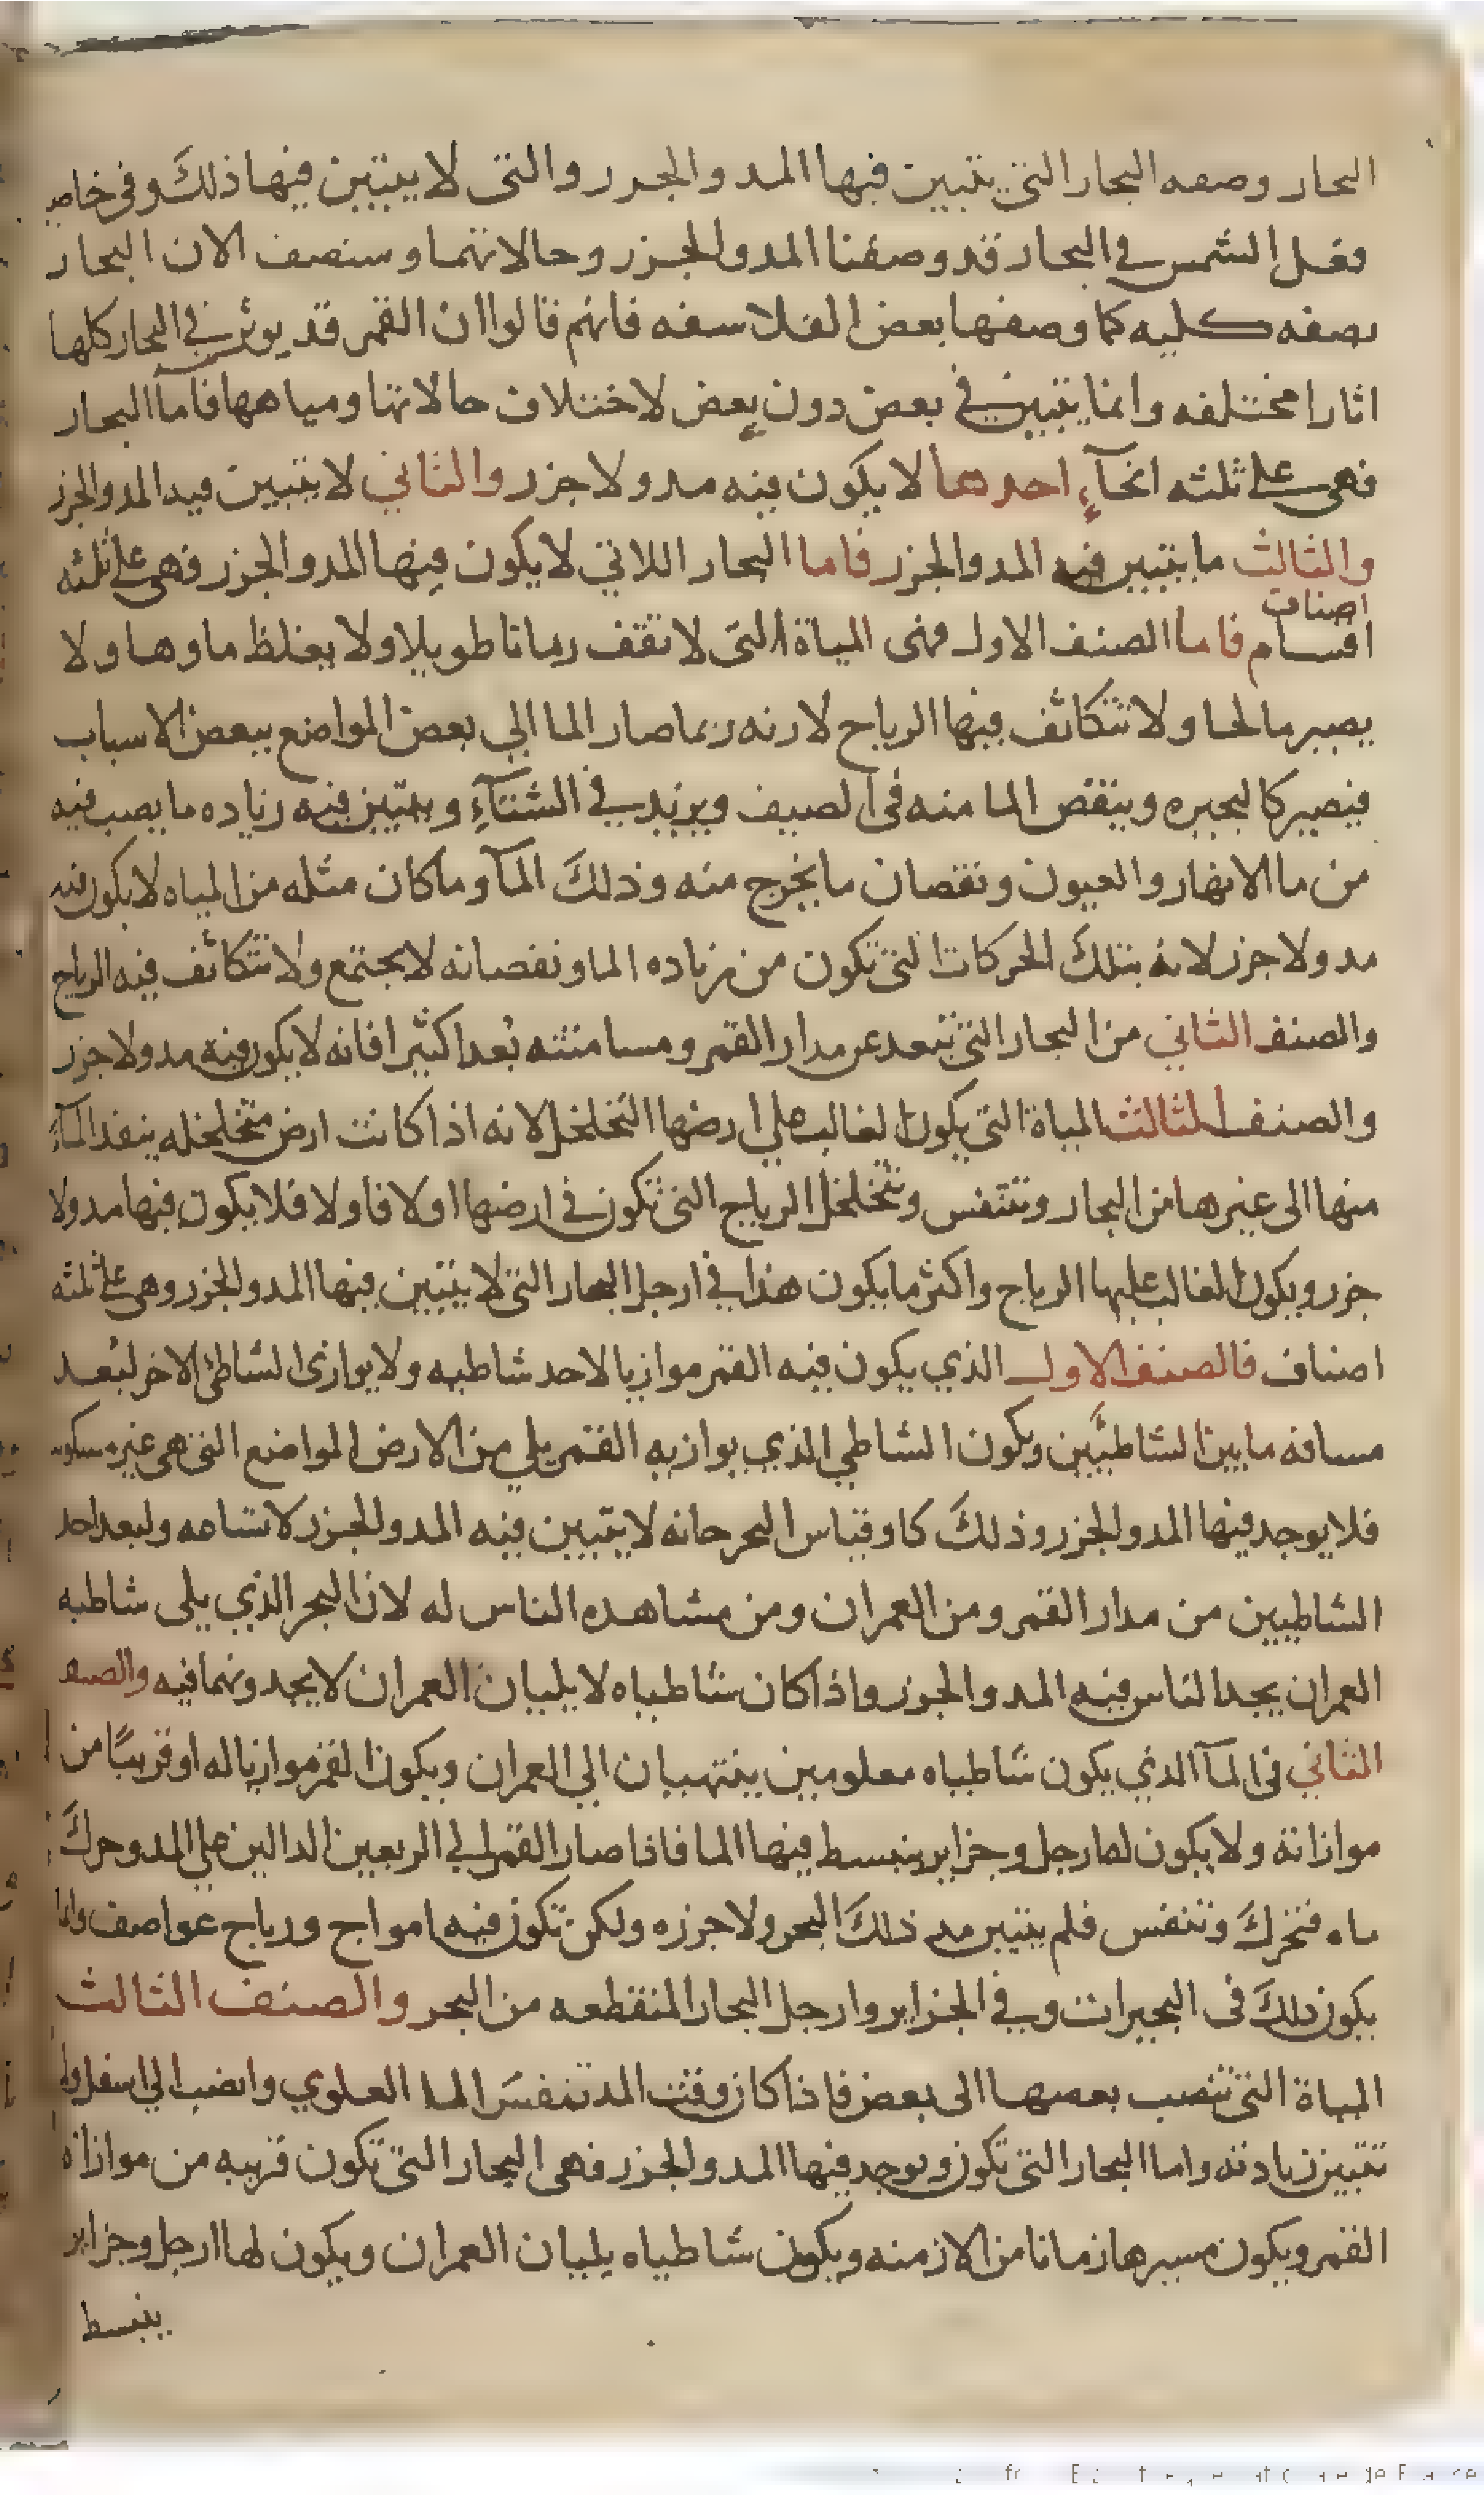 البحار وصفه البحار التي يتبين فيها المد والجزر والتي لا يتبين فيها ذلك وفي خاصه
فعل الشمس في البحار قد وصفنا المد والجزر وحالاتهما وسنصف الان البحار
بصفه كليه كما وصفها بعض الفلاسفه فانهم قالوا ان القمر قد يوثر في البحار كلها
اثارا مختلفه وانما يتبين في بعض دون بعض لاختلاف حالاتها ومياهها فاما البحار
فهي على ثلثه انحآء احدها لا يكون فيه مد ولا جزر والثاني لا يتبين فيه المد والجزر
والثالث ما يتبين فيه المد والجزر فاما البحار اللاتي لا يكون فيها المد والجزر فهي على ثلثه
اصناف
اقسام فاما الصنف الاول فهى المياة التي لا تقف زمانا طويلا ولا يغلظ ماوها ولا
يصير مالحا ولا تتكاثف فيها الرياح لارنه ربما صار الما الي بعض المواضع ببعض الاسباب
فيصير كالبحيره وينقص الما منه في الصيف ويزيد في الشتآء ويتبين فيه زياده ما يصب فيه
من ما الانهار والعيون ونقصان ما يخرج منه وذلك المآ وما كان مثله من المياه لا يكون فيه
مد ولا جزر لانه بتلك الحركات التي تكون من زياده الما ونقصانه لا يجتمع ولا تتكاثف فيه الرياح
والصنف الثاني من البحار التي تبعد عن مدار القمر ومسامتته بُعدا كثيرا فانه لا يكون فيه مد ولا جزر
والصنف الثالث المياة التي يكون الغالب علي ارضها التخلخل لانه اذا كانت ارض متخلخله ينفذ المآء
منها الى غيرها من البحار وتتنفس وتتخلخل الرياح التي تكون في ارضها اولا فاولا فلا يكون فيها مد ولا
جزر ويكون الغالب عليها الرياح واكثر ما يكون هذا في ارجل البحار التي لا يتبين فيها المد والجزر وهي على ثلثه
اصناف فالصنف الاول الذي يكون فيه القمر موازيا لاحد شاطيه ولا يوازى الشاطئ الاخر لبُعد
مسافه ما بين الشاطيين ويكون الشاطي الذي يوازيه القمر يلي من الارض المواضع التي هي غير مسكونه
فلا يوجد فيها المد والجزر وذلك كاوقياس البحر حانه لا يتبين فيه المد والجزر لاتساعه ولبعد احد
الشاطيين من مدار القمر ومن العمران ومن مشاهده الناس له لان البحر الذي يلى شاطيه
العمران يجد الناس فيه المد والجزر واذا كان شاطياه لا يليان العمران لا يجدونهما فيه والصنف
الثاني في المآ الذي يكون شاطياه معلومين ينتهيان الى العمران ويكون القمر موازيا له او قريبًا من
موازاته ولا يكون لها رجل وجزاير ينبسط فيها الما فاذا صار القمر الى الربعين الدالين على المد وحرك
ماه فتحرك وتنفس فلم يتبين مد ذلك البحر ولا جرزه ولكن تكون فيه امواج ورياح عواصف وانما
يكون ذلك فى البحيرات وفي الجزاير وارجل البحار المنقطعه من البحر والصنف الثالث
المياة التي تنصب بعصها الى بعض فاذا كان وقت المد تنفسَ الما العلوي وانصب الى اسفل ولا
تتبين زيادته واما البحار التي تكون ويوجد فيها المد والجزر فهى البحار التي تكون قريبه من موازاة
القمر ويكون مسيرها زمانا من الازمنه ويكون شاطياه يليان العمران ويكون لها ارجل وجزاير
ينبسط